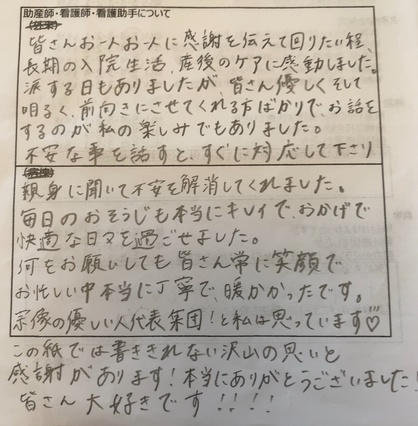 助産師・看護師・看護助手について
皆さんお一人お一人に感謝を伝えて回りたい程、
長期の入院生活、産後のケアに感動しました。
涙する日もありましたが、皆さん優しくそして
明るく、前向きにさせてくれる方ばかりで、お話を
するのが私の楽しみでもありました。
不安な事を話すと、すぐに対応して下さり
親身に聞いて不安を解消してくれました。
毎日のおそうじも本当にキレイで、おかげで
快適な日々を過ごせました。
何をお願いしても皆さん常に笑顔で
お忙しい中本当に丁寧で、暖かかったです。
宗像の優しい人代表集団!と私は思っています♡
この紙では書ききれない沢山の思いと
感謝があります!本当にありがとうございました!
皆さん大好きです!!!!